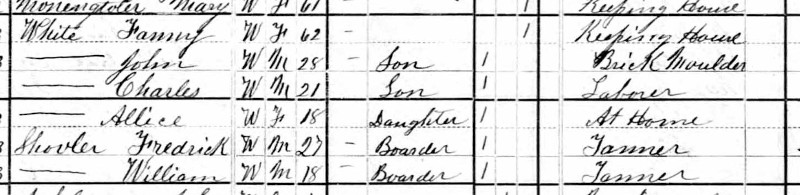 Mary W F 61 1 Keeping House
White Fanny W F 62 — 1 Keepiny House
—— John W M 28 — Son 1 Brick Moulder
—— Charles W M 21 Son 1 Laborer
—— Allice W F 18 Daughter 1 At Home
Shovler Fredrick W M 27 — Boarder 1 Tanner
—— William W M 18 — Boarder 1 Tanner